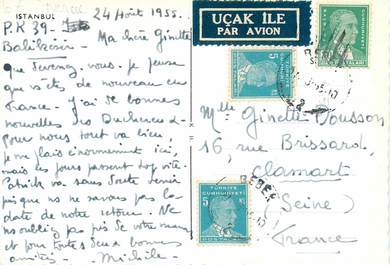 ISTANBUL
24 Août 1955.
P.K 39.
Balikesir
Ma chère Ginette
que devenez-vous. Je pense
que vs êtes de nouveau en
France. J'ai de bonnes
nouvelles des
pour nous tout va bien,
je me plais énormément ici,
mais les jours passent trop vite.
Patrick va sans doute venir
puisque ns ne savons pas la
date de notre retour. Ne
nous oubliez pas près de votre maman
et pour toutes deux bonnes
amitiés. Michèle.
UÇAK İLE
PAR AVION
TÜRKİYE
CUMHURİYETİ
5
Mlle Ginette Dousson
16, rue Brissard,
Clamart
(Seine)
France
BEBEK
TÜRKİYE
CUMHURİYETİ
5
POSTALARI